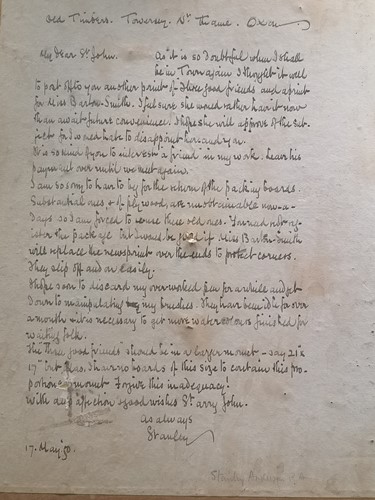 Old Timbers. Towersey. Nr Thame. Oxon
My Dear St. John. As it is so doubtful when I shall
be in Town again I thought it well
to post off to you another print of Three good friends and a print
for Miss Barton-Smith. I feel sure she would rather have it now
than await future convenience. I hope she will approve of the sub-
ject for I would hate to disappoint her and you.
It is so kind of you to interest a friend in my work. Leave his
payment over until we meet again.
I am so sorry to have to beg for the return of the packing boards.
Substantial ones & of plywood are unobtainable now-a-
days so I am forced to re-use these old ones. You need not reg-
ister the package but I would be glad if Miss Barton-Smith
will replace the newsprint over the ends to protect corners.
They slip off and on easily.
I hope soon to discard my overworked pen for a while and get
down to manipulating my brushes. They have been idle for over
a month & it is necessary to get more water colours finished for
waiting folk.
The "Three good friends" should be in a larger mount - say 21 x
17" but alas. I have no boards of this size to contain this pro-
portion of mount. Forgive this inadequacy!
With our affection & good wishes St. John.
As always
Stanley
17. May '50.
Stanley Anderson R.A.